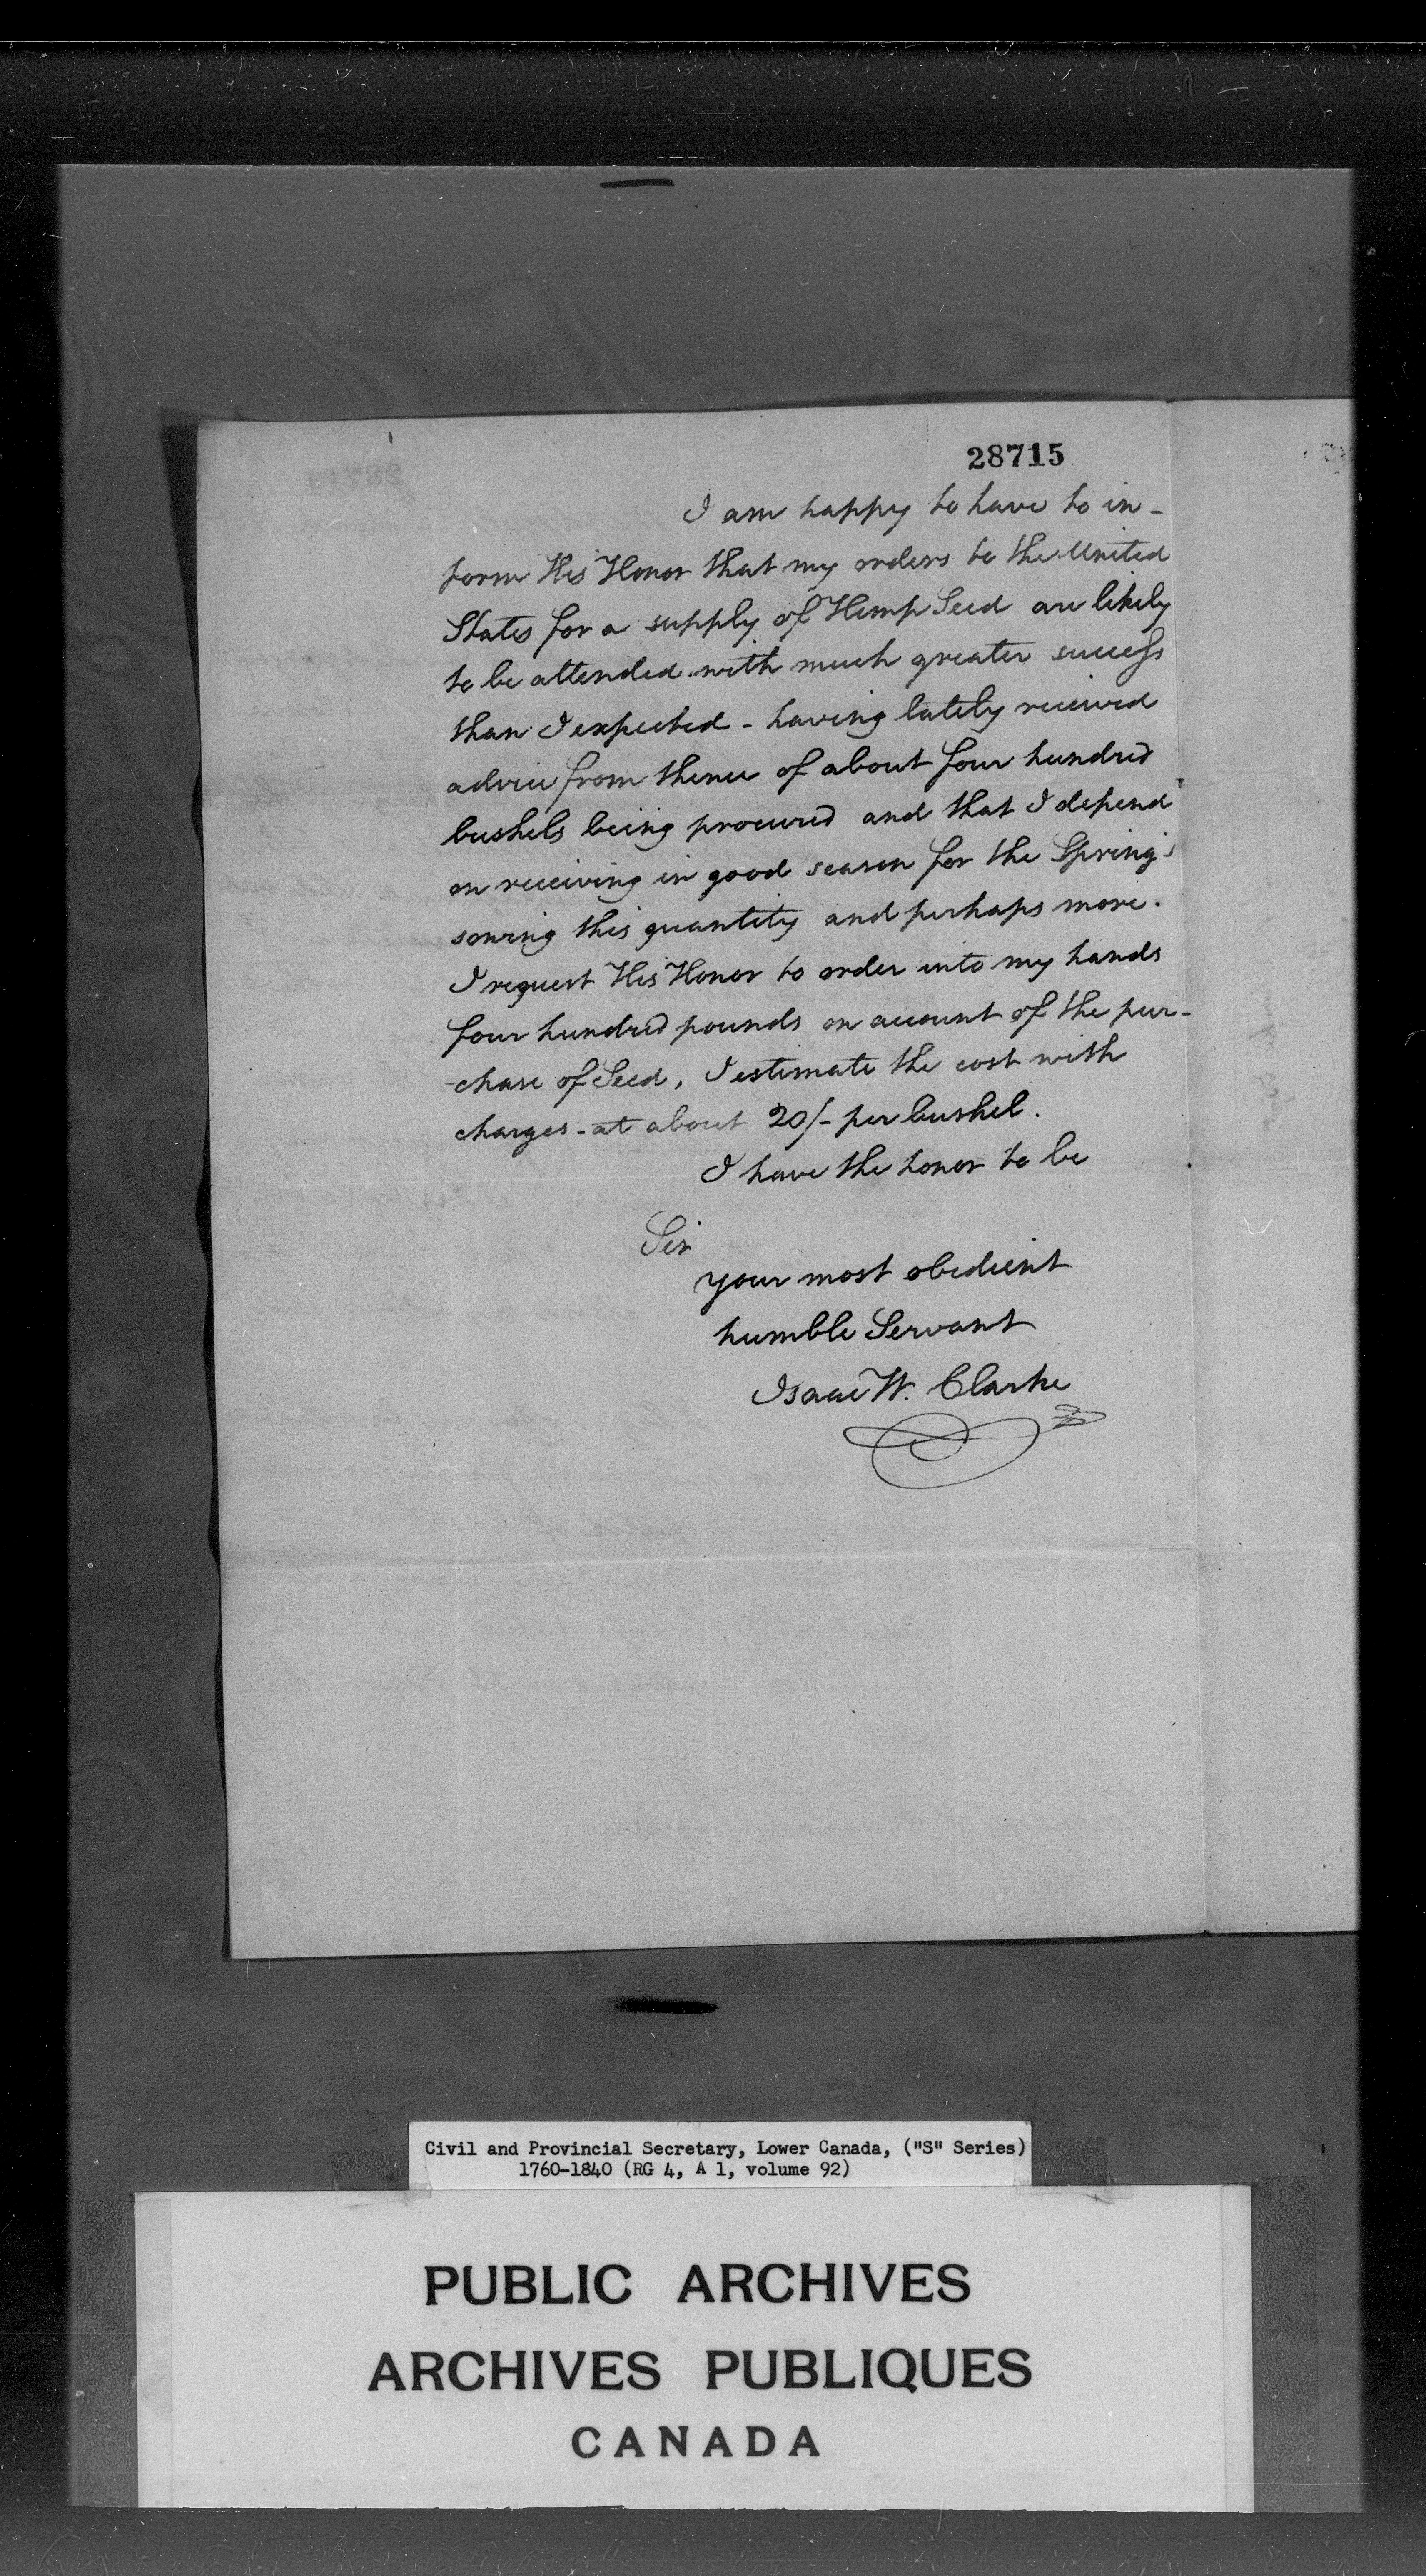 28715
I am happy to have to in-
form His Honor that my orders to the United
States for a supply of Hemp Seed are likely
to be attended with much greater success
than I expected - having lately received
advice from thence of about four hundred
bushels being procured and that I depend
on receiving in good season for the Spring's
sowing this quantity and perhaps more.
I request His Honor to order into my hands
four hundred pounds on account of the pur-
-chase of Seed, I estimate the cost with
charges - at about 20/- per bushel.
I have the honor to be
Sir
your most obedient
humble Servant
Isaac W. Clarke
Civil and Provincial Secretary, Lower Canada, ("S" Series)
1760-1840 (RG 4, A 1, volume 92)
PUBLIC ARCHIVES
ARCHIVES PUBLIQUES
CANADA